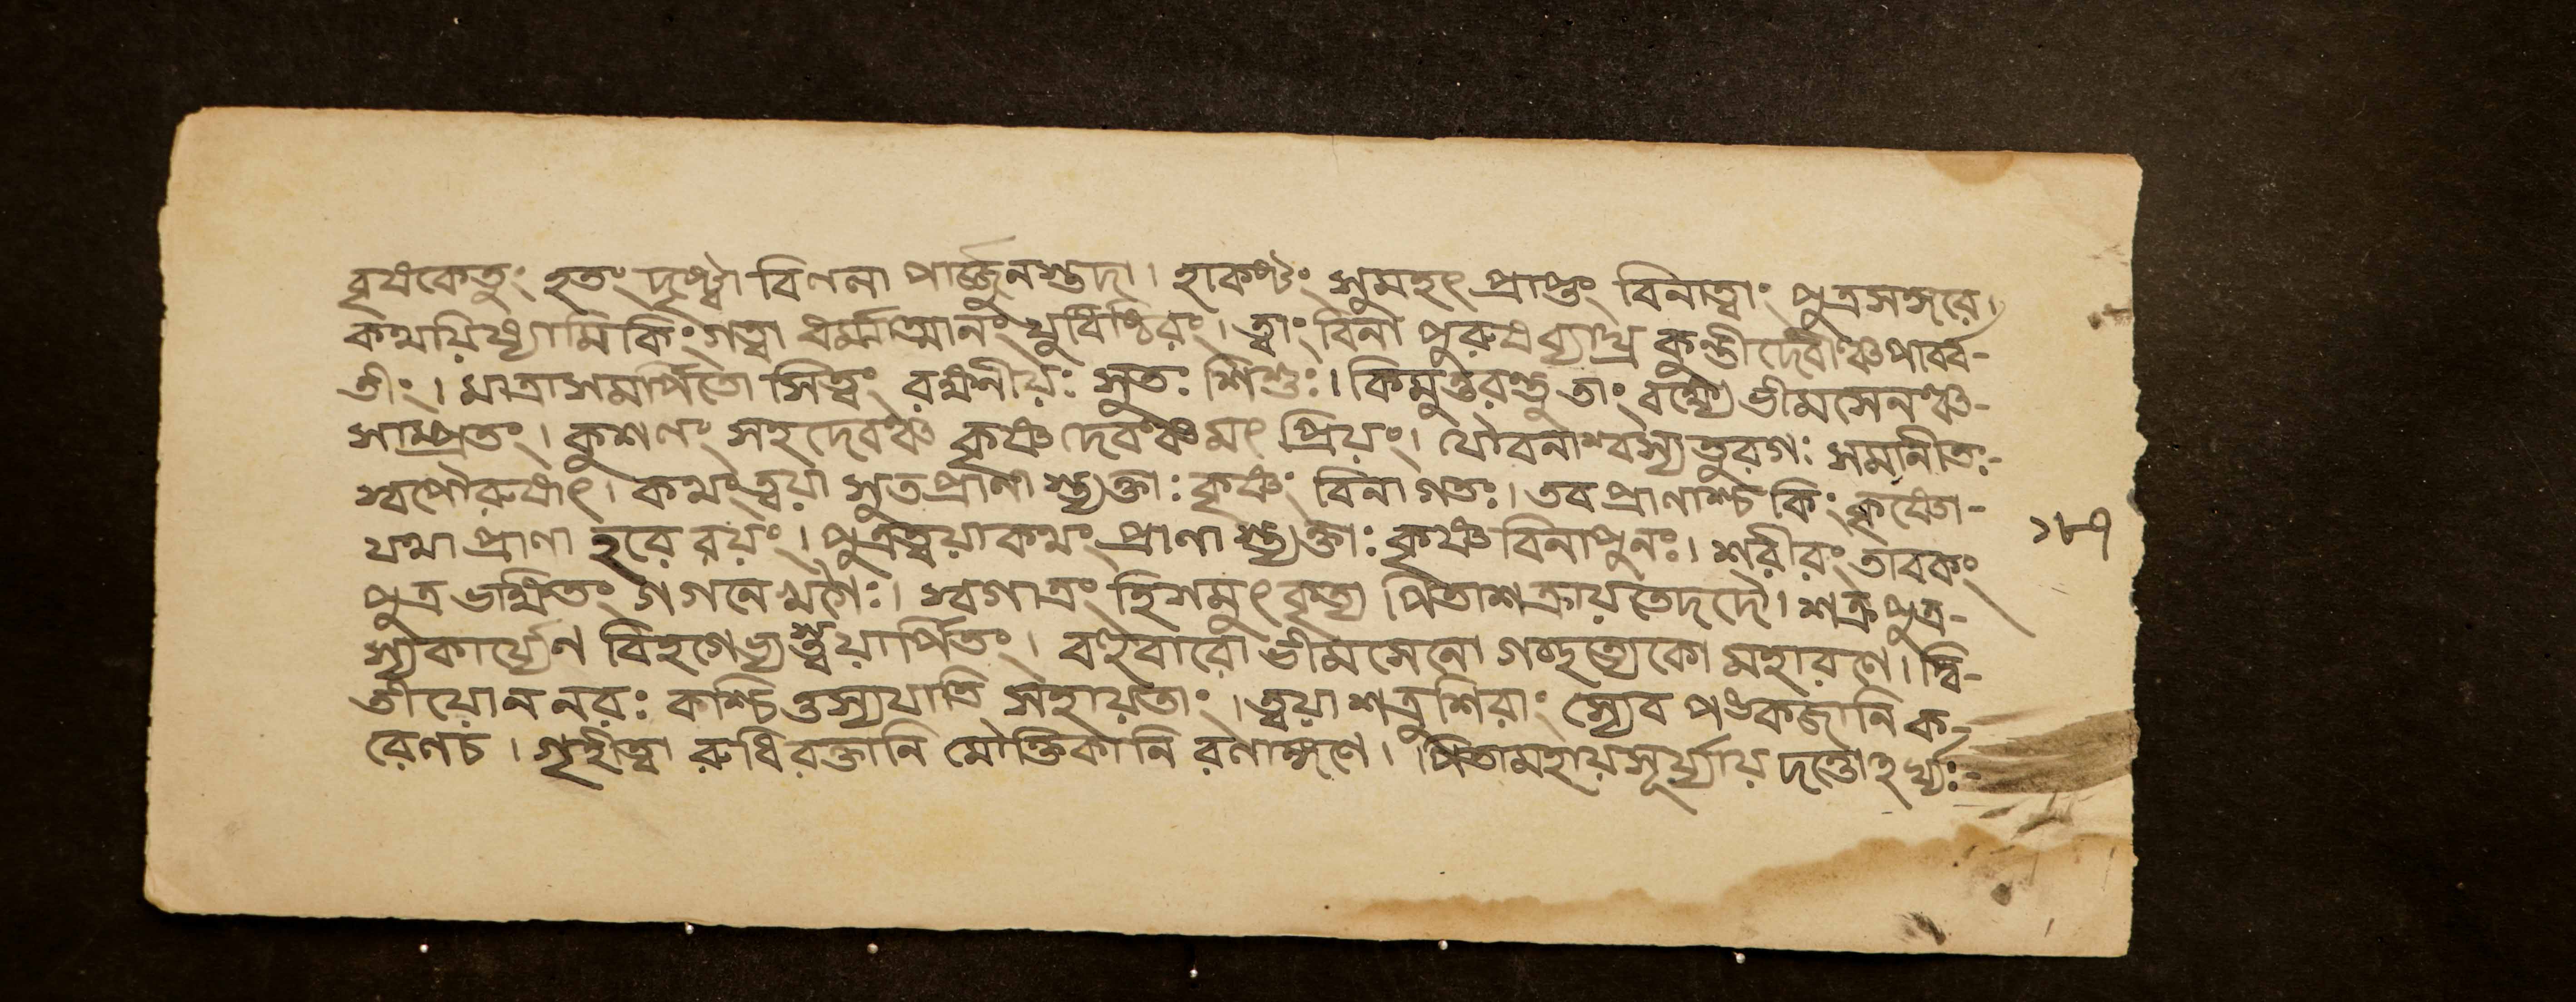 বৃষকেতুং হতং দৃষ্ট্বা বিললা পার্জ্জুনস্তদা। হাকষ্টং সুমহৎ প্রাপ্তং বিনাত্বাং পুত্রসঙ্গরে।
কথয়িষ্যামি কিং গত্বা ধর্ম্মাত্মানং যুধিষ্ঠিরং। ত্বাং বিনা পুরুষব্যাঘ্র কুন্তীদেবীঞ্চপার্ব্ব-
তীং। মাত্রাসমর্পিতো সিত্বং রক্ষণীয়ঃ সুতঃ শিশুঃ। কিমুত্তরন্তু তাং বক্ষ্যে ভীমসেনঞ্চ-
সাম্প্রতং। কুশলং সহদেবঞ্চ কৃষ্ণদেবঞ্চমৎ প্রিয়ং। যৌবনাশ্বস্যতুরগঃ সমানীতঃ-
স্বপৌরুষাৎ। কথংত্বয়া সুতপ্রাণা স্ত্যক্তাঃ কৃষ্ণং বিনা গতঃ। তব প্রাণাশ্চ কিং কৃষ্ণো-
যথা প্রাণা হরে রয়ং। পুত্রত্বয়াকথং প্রাণা স্ত্যক্তাঃ কৃষ্ণং বিনাপুনঃ। শরীরং তাবকং
১৮৭
পুত্র ভক্ষিতং গগনেখগৈঃ। স্বগাত্রং হিসমুৎকৃত্য পিতাশক্রায়তেদদৌ। শত্রুপুত্র-
স্যকার্য্যেণ বিহগেভ্যস্ত্বয়ার্পিতং। বহুবারো ভীমসেনো গচ্ছত্যেকো মহারণে। দ্বি-
তীয়োননরঃ কশ্চিত্তস্যযাতি সহায়তাং। ত্বয়া শত্রুশিরাং স্যেব পঙ্কজানি ক-
রেণচ। গৃহীত্বা রুধিরক্তানি মৌক্তিকানি রণাঙ্গণে। পিতামহায়সূর্য্যায় দত্তোহর্ঘ্যঃ-